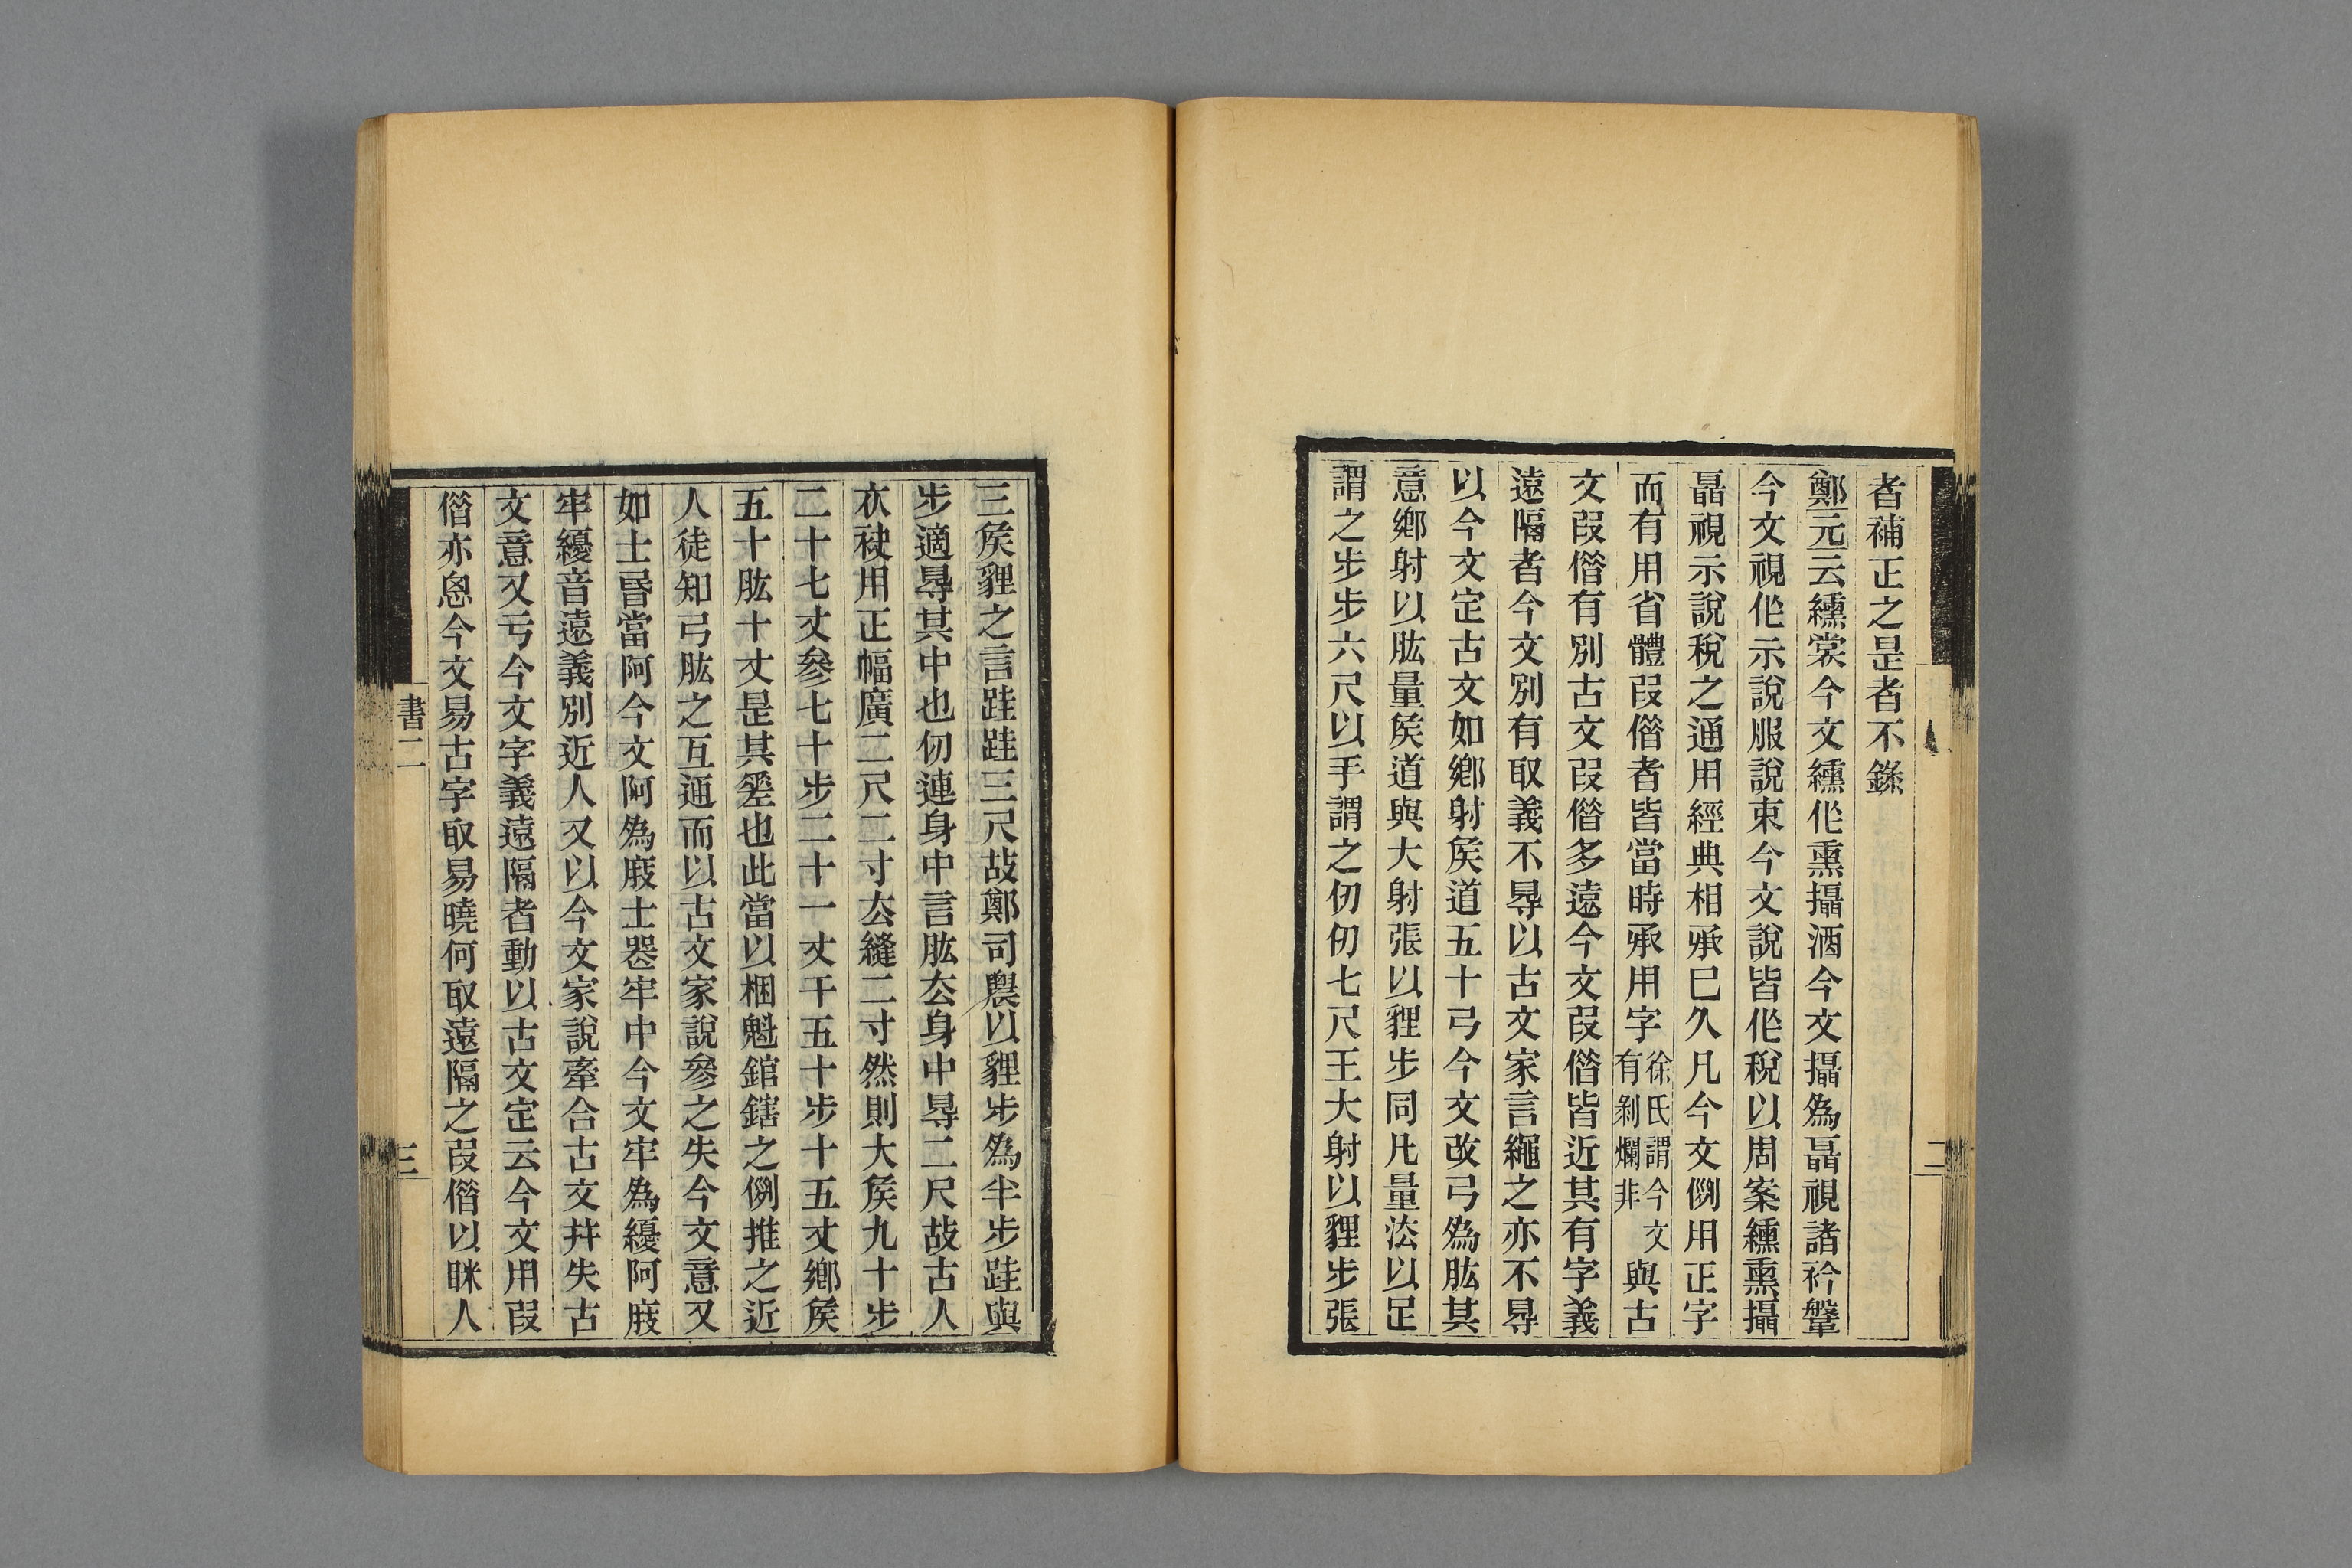 者補正之是者不錄
鄭元云纁裳今文纁作熏攝酒今文攝為聶視諸衿鞶
今文視作示說服說束今文說皆作稅以周案纁熏攝
聶視示說稅之通用經典相承已久凡今文例用正字
而有用省體叚借者皆當時承用字徐氏謂今文有剝爛非與古
文叚借有別古文叚借多遠今文叚借皆近其有字義
遠隔者今文別有取義不㝵以古文家言繩之亦不㝵
以今文定古文如鄉射矦道五十弓今文改弓為肱其
意鄉射以肱量矦道與大射張以貍步同凡量法以足
謂之步步六尺以手謂之仞仞七尺王大射以貍步張
二
三矦貍之言跬跬三尺故鄭司農以貍步為半步跬與
步適㝵其中也仞連身中言肱厺身中㝵二尺故古人
衣袂用正幅廣二尺二寸厺縫二寸然則大矦九十步
二十七丈參七十步二十一丈干五十步十五丈鄉矦
五十肱十丈是其差也此當以梱魁錧鎋之例推之近
人徒知弓肱之互通而以古文家說參之失今文意又
如士昬當阿今文阿為庪士喪牢中今文牢為纋阿庪
牢纋音遠義別近人又以今文家說牽合古文并失古
文意又亏今文字義遠隔者動以古文定云今文用叚
借亦恖今文易古字取易曉何取遠隔之叚借以眯人
書二
三